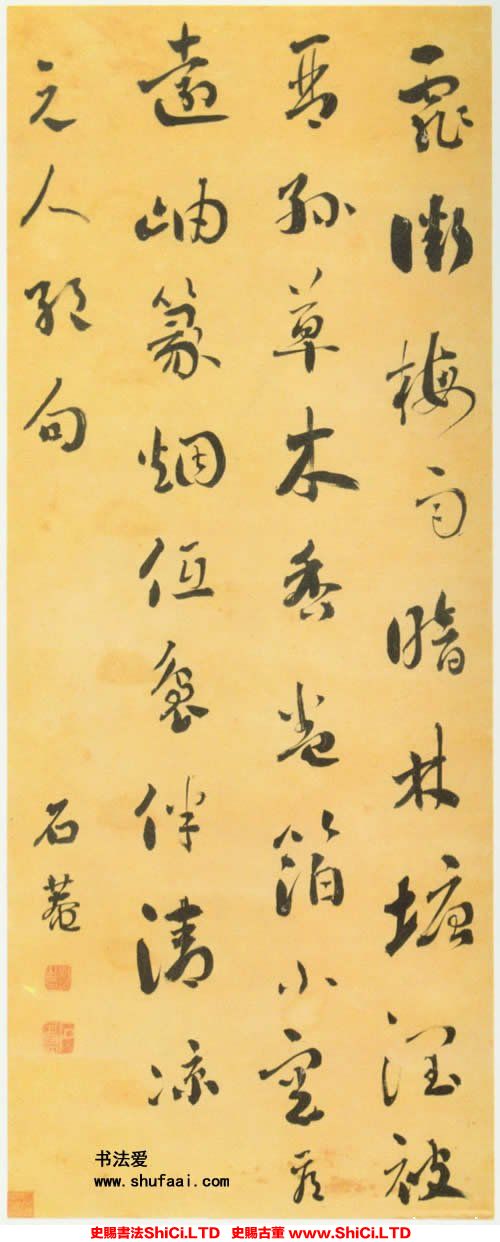 霏微梅雨暗林塘润被
琴孙草木香卷箔小窗看
远岫篆烟低袅伴清凉
元人绝句
石菴
书法爱
www.shufaai.com
史賜書法ShiCi.LTD 史賜古董 www.ShiCi.LTD